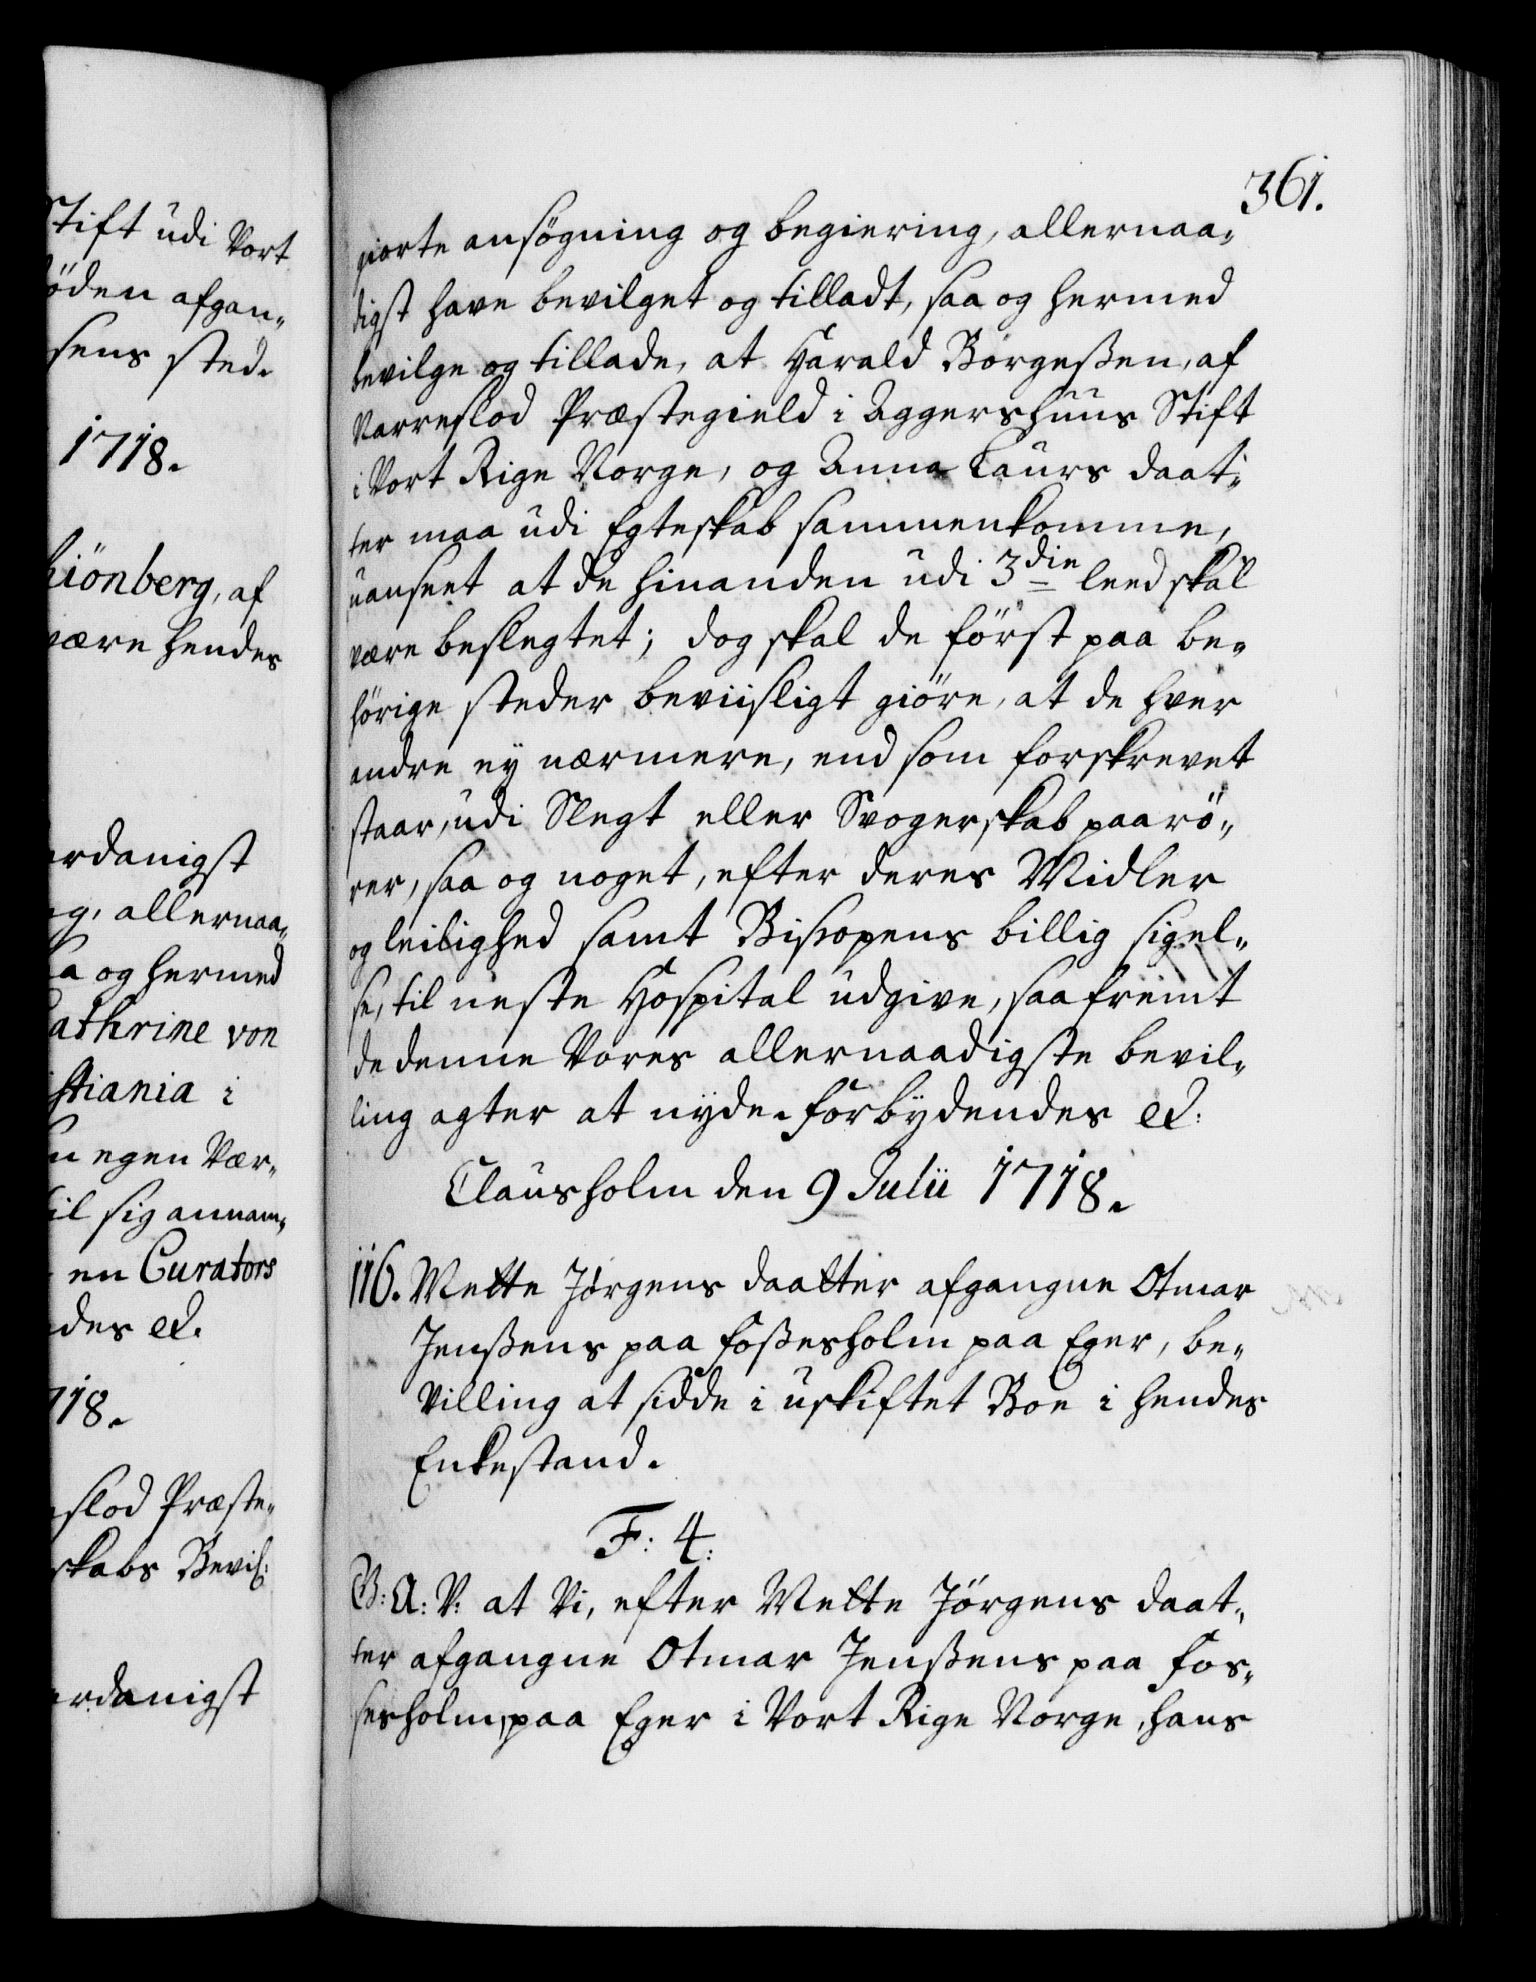 Stift udi Vort
döden afgan-
sens sted.
1718.
hiönberg, af
være hendes
erdanigst
ng, allernaa-
saa og hermed
Cathrine von
istiania i
en egen Vær-
til sig annam-
en Curators
des etc.
1718.
slod Præste-
skabs Bevil:
erdanigst
361.
giorte ansøgning og begiering, allernaa-
digst have bevilget og tilladt, saa og hermed
bevilge og tillade, at Harald Børgeßen, af
Norreslod Præstegield i Aggershuus Stift
i Vort Rige Norge, og Anna Laurs daat-
ter maa udi Egteskab sammenkomme,
uanseet at de hinanden udi 3die leed skal
være beslegtet; dog skal de først paa be-
hörige steder beviisligt giöre, at de hver
andre ey nærmere, end som forskrevet
staar, udi Slegt eller Svogerskab paarö-
rer, saa og noget, efter deres Midler
og leilighed samt Bispens billig sigel-
se, til neste Hospital udgive, saafremt
de denne Vores allernaadigste bevil-
ling agter at nyde. Forbydendes etc:
Clausholm den 9 Julii 1718.
116. Mette Jørgens daatter afgangne Otmar
Jenßens paa Foßesholm paa Eger, be-
villing at sidde i uskiftet Boe i hendes
Enkestand.
F: 4:
G: A: V: at Vi, efter Mette Jørgens daat-
ter afgangne Otmar Jenßens paa Fos-
sesholm, paa Eger i Vort Rige Norge, hans